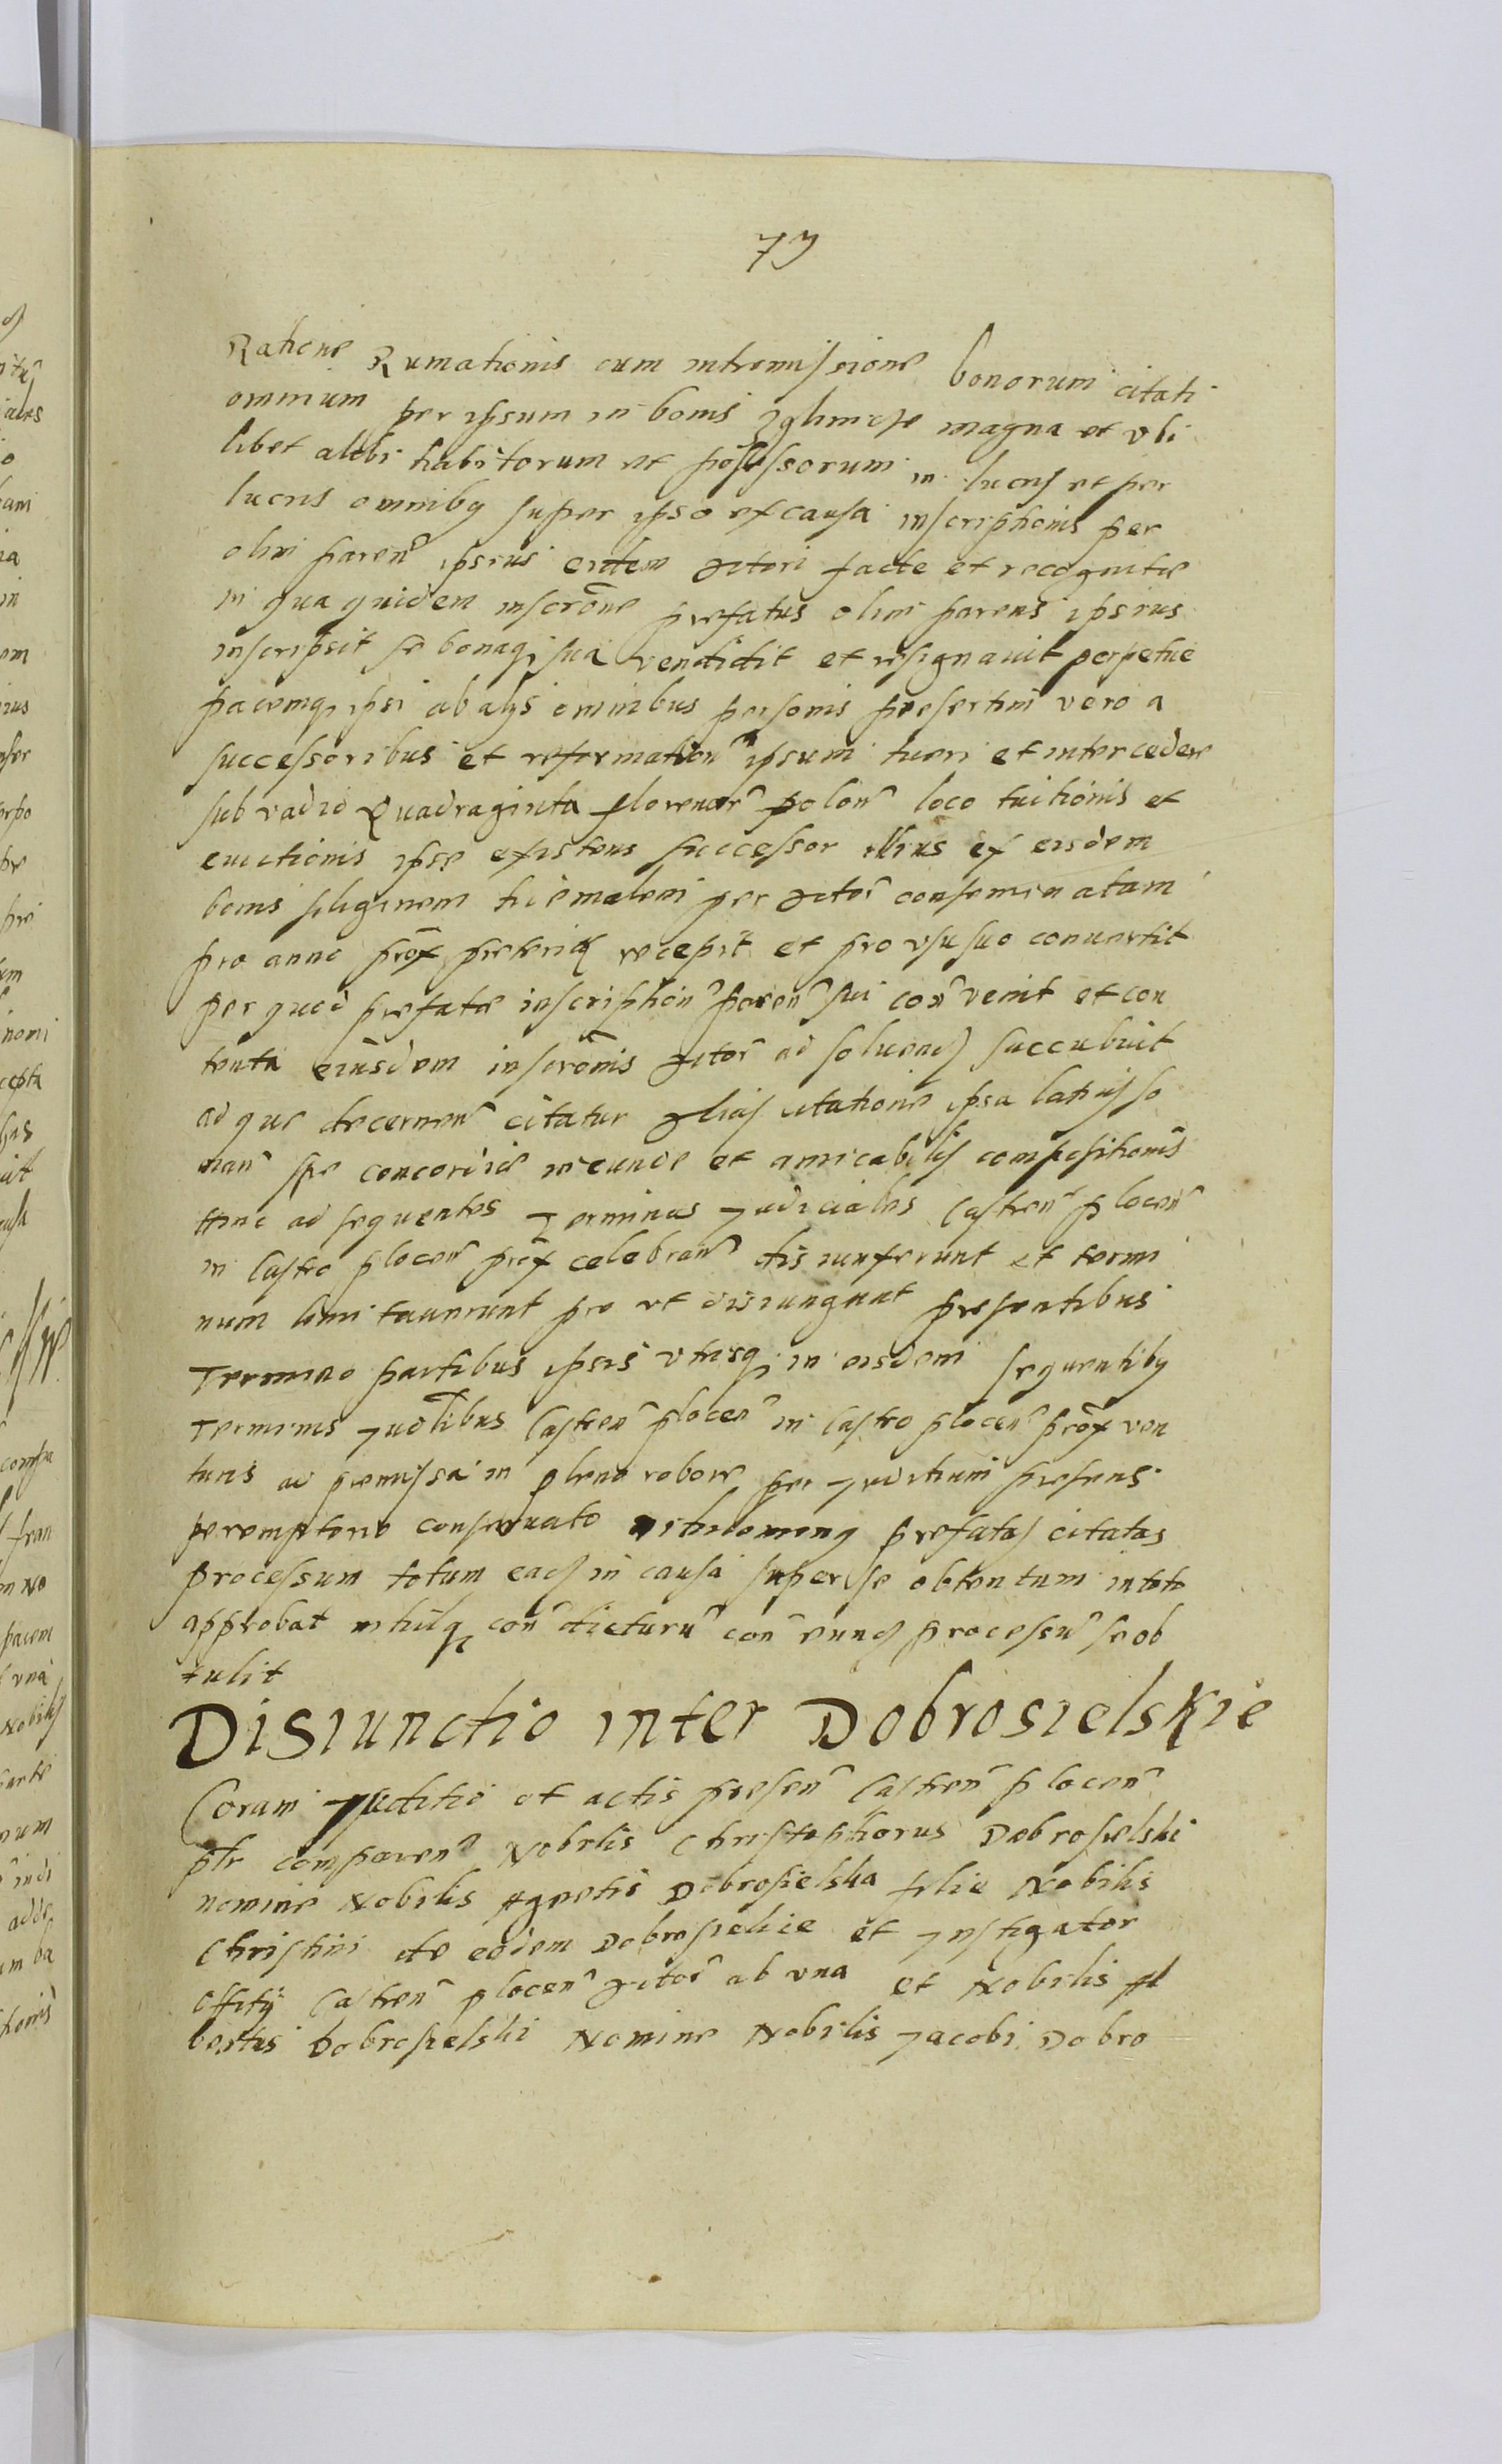 73
Ratione Rumationis cum intromissione bonorum citati
omnium per ipsum in bonis magna et vbi
libet alibi habitorum et possessorum in lucris et per
lucris omnibq super ipso ex causa inscriptionis per
olim paren ipsius eidem actori facte et recognite
in qua quidem inscrone prefatus olim parens ipsius
inscripsit se bonaq sua vendidit et resignauit perpetue
pacemq ipsi ab alijs omnibus personis presertim vero a
successoribus et reformation ipsum tueri et intercedere
sub vadio Quadraginta florenor polon loco tuitionis et
euictionis ipse existens successor illius ex eisdem
bonis siliginem hiemalem per actor conseminatam
pro anno prox preterit recepit et pro vsu suo conuertit
per quod prefate inscription paren sui con venit et con
tenta eiusdem inscronis actor ad soluend succubuit
ad que decernen citatur alias citatione ipsa latius so
nan spe concordie ineunde et amicabilis compositionis
hinc ad sequentes Terminos Judiciales Castren plocen
in Castro plocen prox celebran disiunxerunt et termi
num limitauerunt pro vt disiungunt presentibus
Termino partibus ipsis vtrisq in eisdem sequentibq
Terminis Judlibus Castren plocen in Castro plocen prox ven
turis ad premissa in pleno robore per Juditium presens
peremptorie conseruato prefatus citatus
processum totum in causa super se obtentum in toto
approbat nihilq con dicturu con eund processu se ob
tulit
Disiunctio inter Dobrosielskie
Coram Juditio et actis presen Castren plocen
plr comparen Nobilis Christophorus Dobrosielski
nomine Nobilis Agnetis Dobrosielska filie Nobilis
Christini de eadem Dobrosielice et Instigator
Offitij Castren plocen actor ab vna et Nobilis Al
bertus Dobrosielski Nomine Nobilis Jacobi Dobro